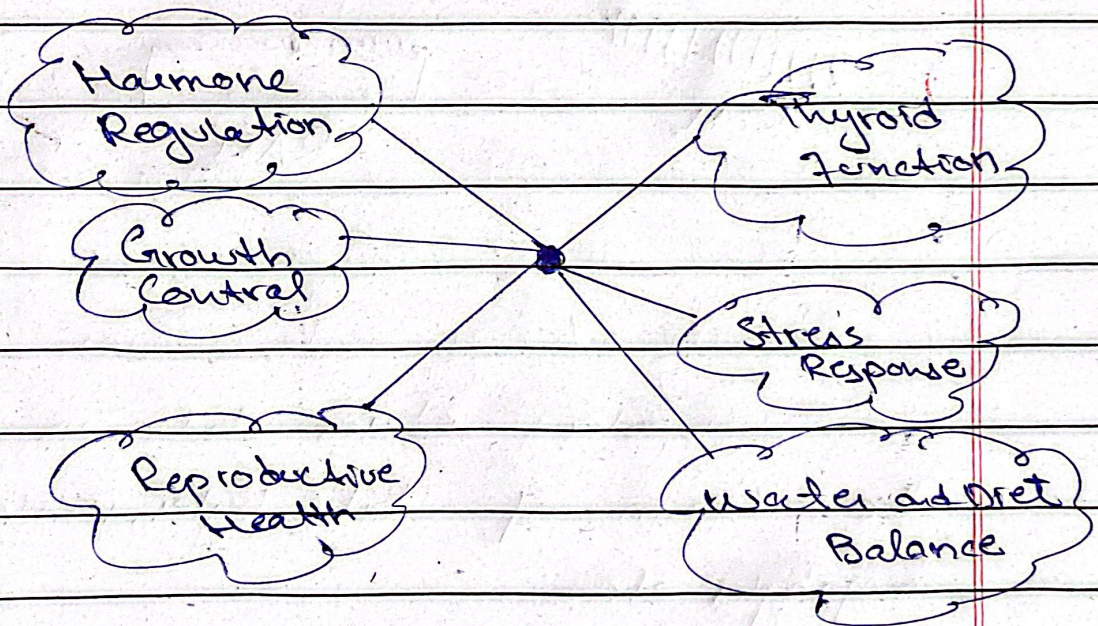 Hormone
Regulation
Growth
Control
Reproductive
Health
Thyroid
Function
Stress
Response
Water and Diet
Balance